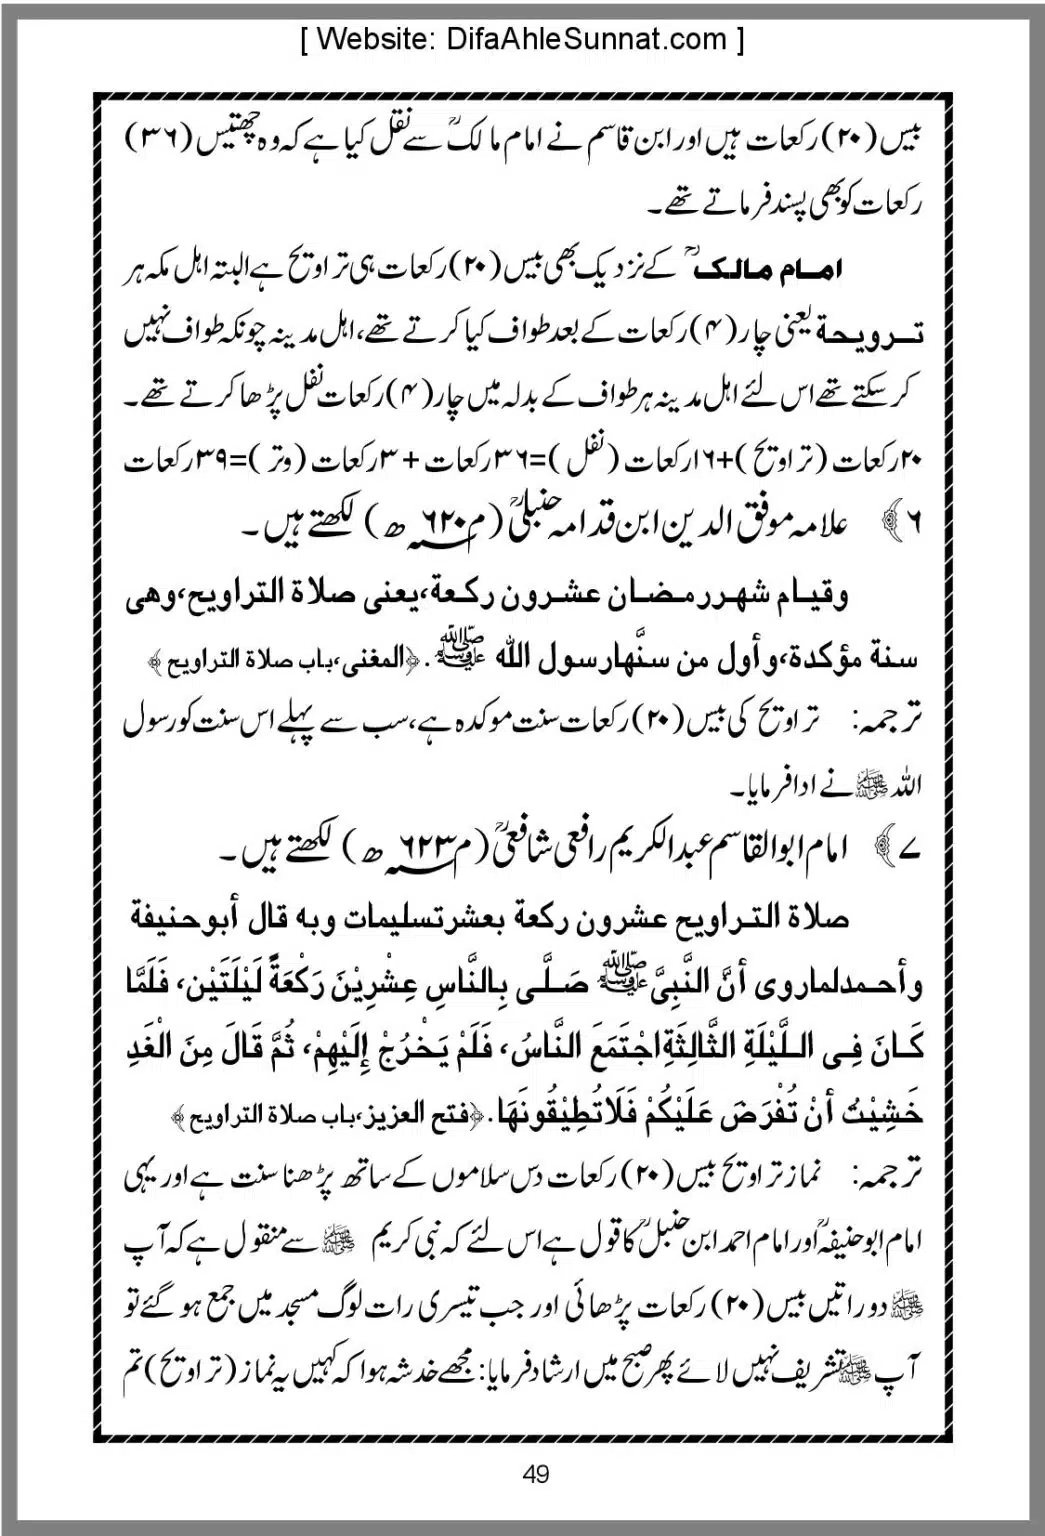 [ Website: DifaAhleSunnat.com ]
بیس (۲۰) رکعات ہیں اور ابن قاسم نے امام مالکؒ سے نقل کیا ہے کہ وہ چھتیس (۳۶)
رکعات کو بھی پسند فرماتے تھے۔
امام مالکؒ کے نزدیک بھی بیس (۲۰) رکعات ہی تراویح ہے البتہ اہل مکہ ہر
ترویحة یعنی چار (۴) رکعات کے بعد طواف کیا کرتے تھے، اہل مدینہ چونکہ طواف نہیں
کر سکتے تھے اس لئے اہل مدینہ ہر طواف کے بدلہ میں چار (۴) رکعات نفل پڑھا کرتے تھے۔
۲۰ رکعات (تراویح) +۱۶ رکعات (نفل) =۳۶ رکعات + ۳ رکعات (وتر) =۳۹ رکعات
۶﴾ علامہ موفق الدین ابن قدامہ حنبلیؒ (م ۶۲۰ ھ) لکھتے ہیں۔
وقیام شهر رمضان عشرون رکعة، یعنی صلاة التراویح، وهی
سنة مؤکدة، وأول من سنَّها رسول الله ﷺ. ﴿المغنی، باب صلاة التراویح﴾
ترجمہ: تراویح کی بیس (۲۰) رکعات سنت موکدہ ہے، سب سے پہلے اس سنت کو رسول
اللہ ﷺ نے ادا فرمایا۔
۷﴾ امام ابوالقاسم عبدالکریم رافعی شافعیؒ (م ۶۲۳ ھ) لکھتے ہیں۔
صلاة التراویح عشرون رکعة بعشر تسلیمات وبه قال أبو حنیفة
وأحمد لما روی أنَّ النَّبِیَّ ﷺ صَلَّی بِالنَّاسِ عِشْرِیْنَ رَکْعَةً لَیْلَتَیْنِ، فَلَمَّا
کَانَ فِی اللَّیْلَةِ الثَّالِثَةِ اجْتَمَعَ النَّاسُ، فَلَمْ یَخْرُجْ إِلَیْهِمْ، ثُمَّ قَالَ مِنَ الْغَدِ
خَشِیْتُ أنْ تُفْرَضَ عَلَیْکُمْ فَلَا تُطِیْقُونَهَا. ﴿فتح العزیز، باب صلاة التراویح﴾
ترجمہ: نماز تراویح بیس (۲۰) رکعات دس سلاموں کے ساتھ پڑھنا سنت ہے اور یہی
امام ابوحنیفہؒ اور امام احمد ابن حنبلؒ کا قول ہے اس لئے کہ نبی کریم ﷺ سے منقول ہے کہ آپ
ﷺ دو راتیں بیس (۲۰) رکعات پڑھائی اور جب تیسری رات لوگ مسجد میں جمع ہو گئے تو
آپ ﷺ تشریف نہیں لائے پھر صبح میں ارشاد فرمایا: مجھے خدشہ ہوا کہ کہیں یہ نماز (تراویح) تم
49